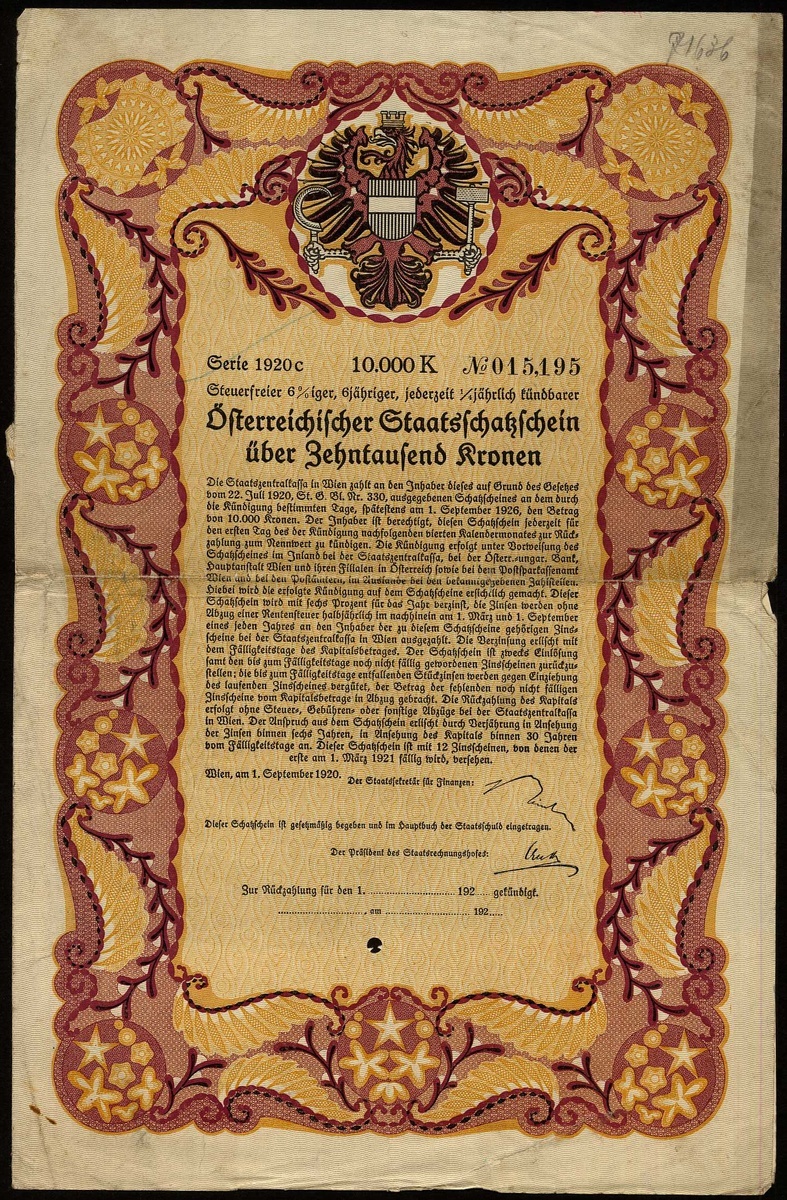 1636
Serie 1920 c 10.000 K № 015,195
Steuerfreier 6%iger, 6jähriger, jederzeit ¼jährlich kündbarer
Österreichischer Staatsschatzschein
über Zehntausend Kronen
Die Staatszentralkassa in Wien zahlt an den Inhaber dieses auf Grund des Gesetzes
vom 22. Juli 1920, St. G. Bl. Nr. 330, ausgegebenen Schatzscheines an dem durch
die Kündigung bestimmten Tage, spätestens am 1. September 1926, den Betrag
von 10.000 Kronen. Der Inhaber ist berechtigt, diesen Schatzschein jederzeit für
den ersten Tag des der Kündigung nachfolgenden vierten Kalendermonates zur Rück-
zahlung zum Nennwert zu kündigen. Die Kündigung erfolgt unter Vorweisung des
Schatzscheines im Inland bei der Staatszentralkassa, bei der Österr.-ungar. Bank,
Hauptanstalt Wien und ihren Filialen in Österreich sowie bei dem Postsparkassenamt
Wien und bei den Postämtern, im Auslande bei den bekanntgegebenen Zahlstellen.
Hiebei wird die erfolgte Kündigung auf dem Schatzscheine ersichtlich gemacht. Dieser
Schatzschein wird mit sechs Prozent für das Jahr verzinst, die Zinsen werden ohne
Abzug einer Rentensteuer halbjährlich im nachhinein am 1. März und 1. September
eines jeden Jahres an den Inhaber der zu diesem Schatzscheine gehörigen Zins-
scheine bei der Staatszentralkassa in Wien ausgezahlt. Die Verzinsung erlischt mit
dem Fälligkeitstage des Kapitalsbetrages. Der Schatzschein ist zwecks Einlösung
samt den bis zum Fälligkeitstage noch nicht fällig gewordenen Zinsscheinen zurückzu-
stellen; die bis zum Fälligkeitstage entfallenden Stückzinsen werden gegen Einziehung
des laufenden Zinsscheines vergütet, der Betrag der fehlenden noch nicht fälligen
Zinsscheine vom Kapitalsbetrage in Abzug gebracht. Die Rückzahlung des Kapitals
erfolgt ohne Steuer-, Gebühren- oder sonstige Abzüge bei der Staatszentralkassa
in Wien. Der Anspruch aus dem Schatzschein erlischt durch Verjährung in Ansehung
der Zinsen binnen sechs Jahren, in Ansehung des Kapitals binnen 30 Jahren
vom Fälligkeitstage an. Dieser Schatzschein ist mit 12 Zinsscheinen, von denen der
erste am 1. März 1921 fällig wird, versehen.
Wien, am 1. September 1920.
Der Staatssekretär für Finanzen:
Dieser Schatzschein ist gesetzmäßig begeben und im Hauptbuch der Staatsschuld eingetragen.
Der Präsident des Staatsrechnungshofes:
Zur Rückzahlung für den 1. .................... 192..... gekündigt.
...................., am .................... 192.....